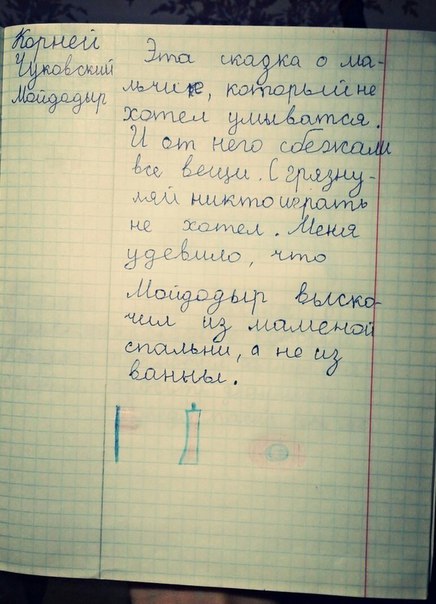 Корней
Чуковский
Мойдодыр
Эта скадка о ма-
льчике, который не
хотел умыватся.
И от него сбежали
все вещи. С грязну-
ляй никто играть
не хотел. Меня
удевило, что
Мойдодыр выско-
чил из маменой
спальни, а не из
ванны.